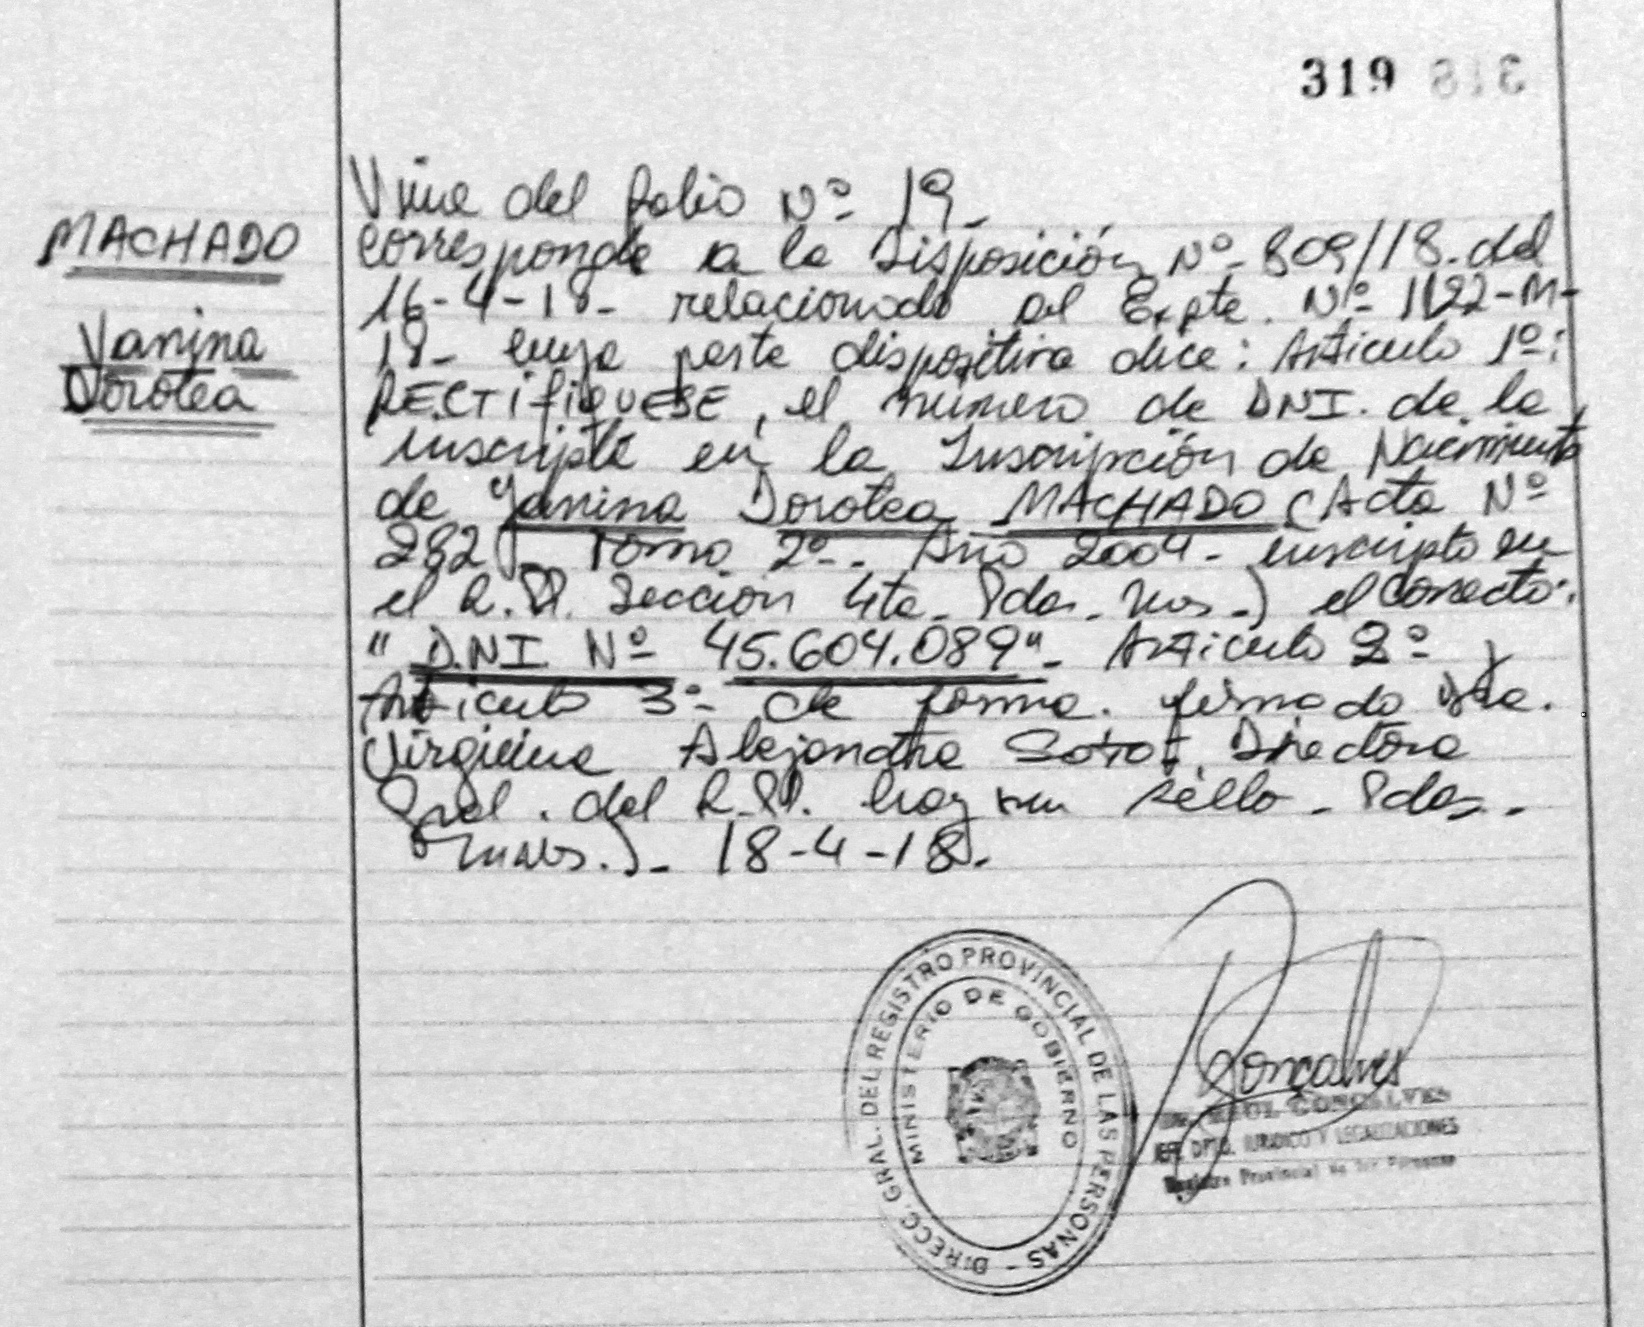 319 318
MACHADO
Vanina
Dorotea
Viene del folio Nº 19.
Corresponde a la Disposición Nº 809/18. del
16-4-18- relacionado al Expte. Nº 1122-M-
18- cuya parte dispositiva dice: Artículo 1º:
RECTIFIQUESE, el número de DNI. de la
inscripta en la Inscripción de Nacimiento
de Vanina Dorotea MACHADO (Acta Nº
282 - Tomo 2º-. Año 2004- inscripto en
el R.P. Sección 4ta- Pdas. Mnes.-) el correcto:
" D.NI Nº 45.604.089"- Artículo 2º y
Artículo 3º- de forma. firmado Dra.
Virginia Alejandra Soto, Directora
Gral. del R.P. hay un sello- Pdas-
Mnes.)- 18-4-18.
DIRECC. GRAL. DEL REGISTRO PROVINCIAL DE LAS PERSONAS -
MINISTERIO DE GOBIERNO
Gonçalves
RAUL GONCALVES
JEFE DPTO. JURIDICO Y LEGALIZACIONES
Registro Provincial de las Personas